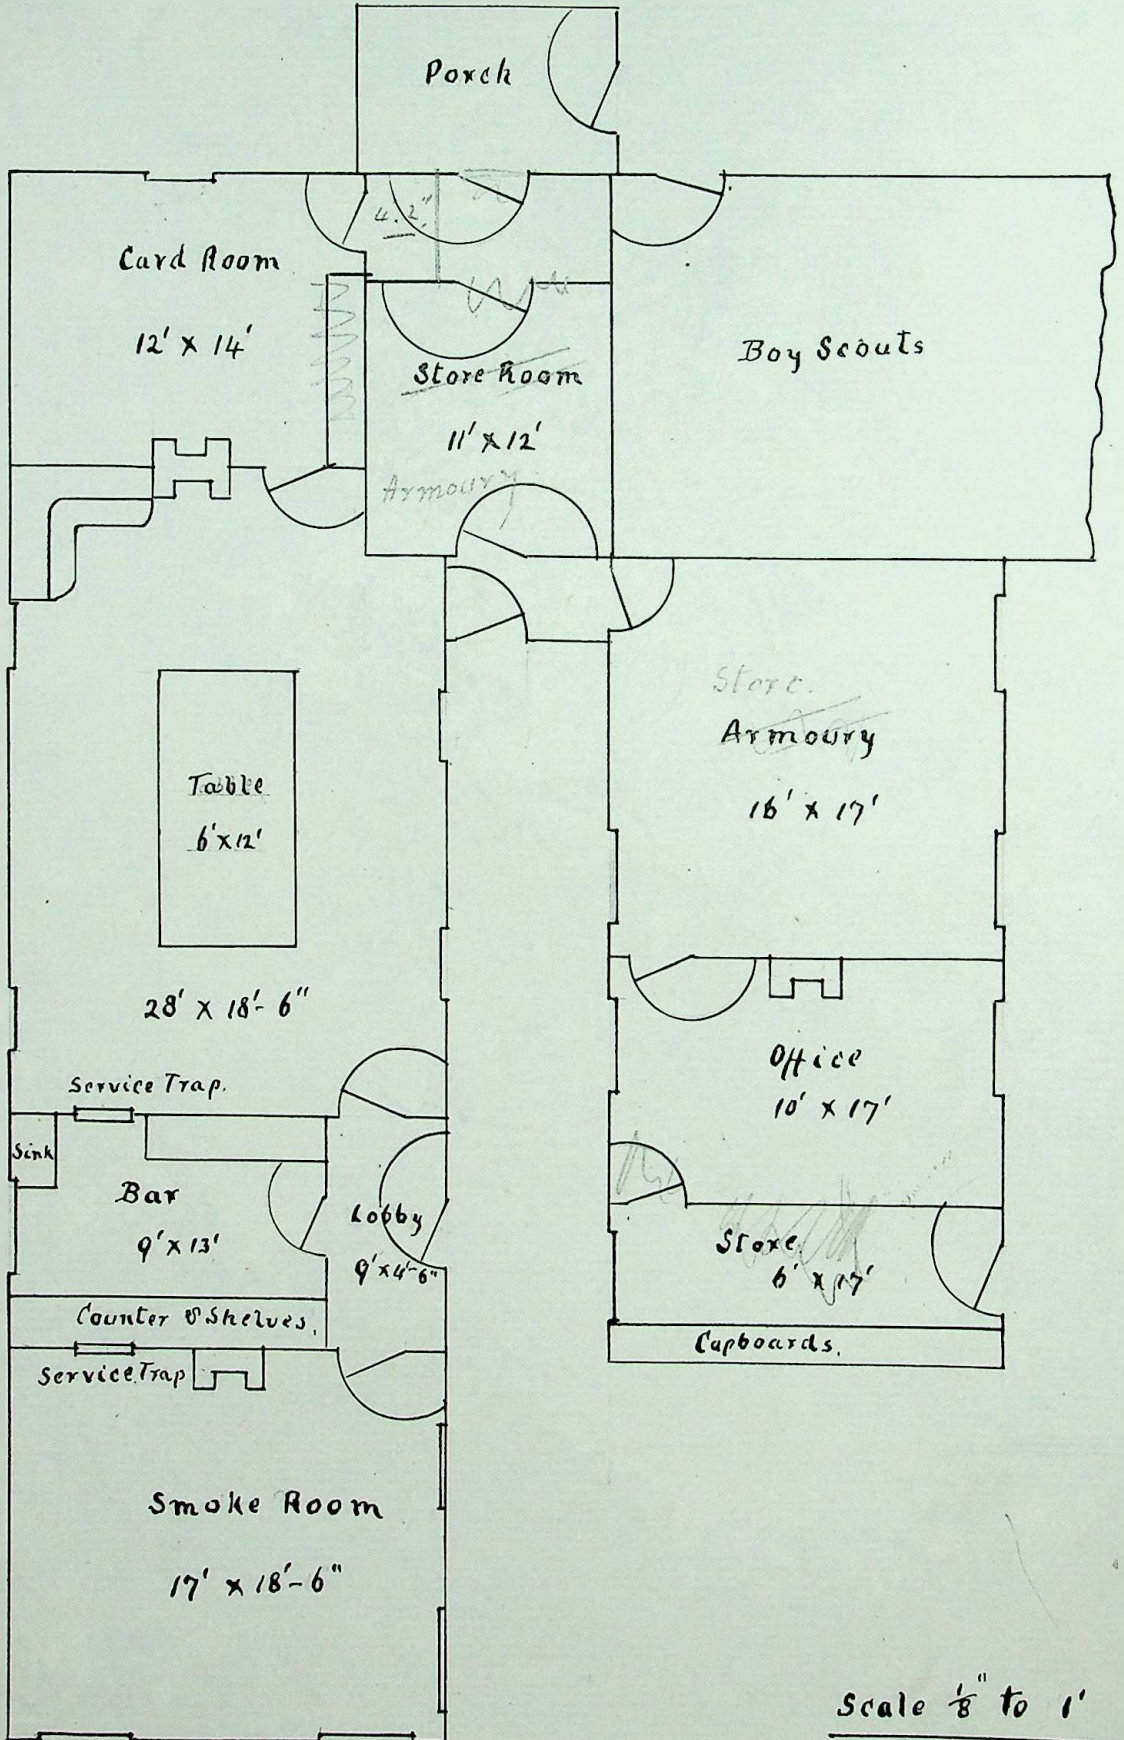 Porch
4.2"
Card Room
12' x 14'
Store Room
11' x 12'
Armoury
Boy Scouts
Store.
Armoury
16' x 17'
Table
6' x 12'
28' x 18'-6"
Service Trap.
Sink
Bar
9' x 13'
Lobby
9' x 4'-6"
Counter & Shelves.
Service Trap
Office
10' x 17'
Store
6' x 17'
Cupboards.
Smoke Room
17' x 18'-6"
Scale 1/8" to 1'